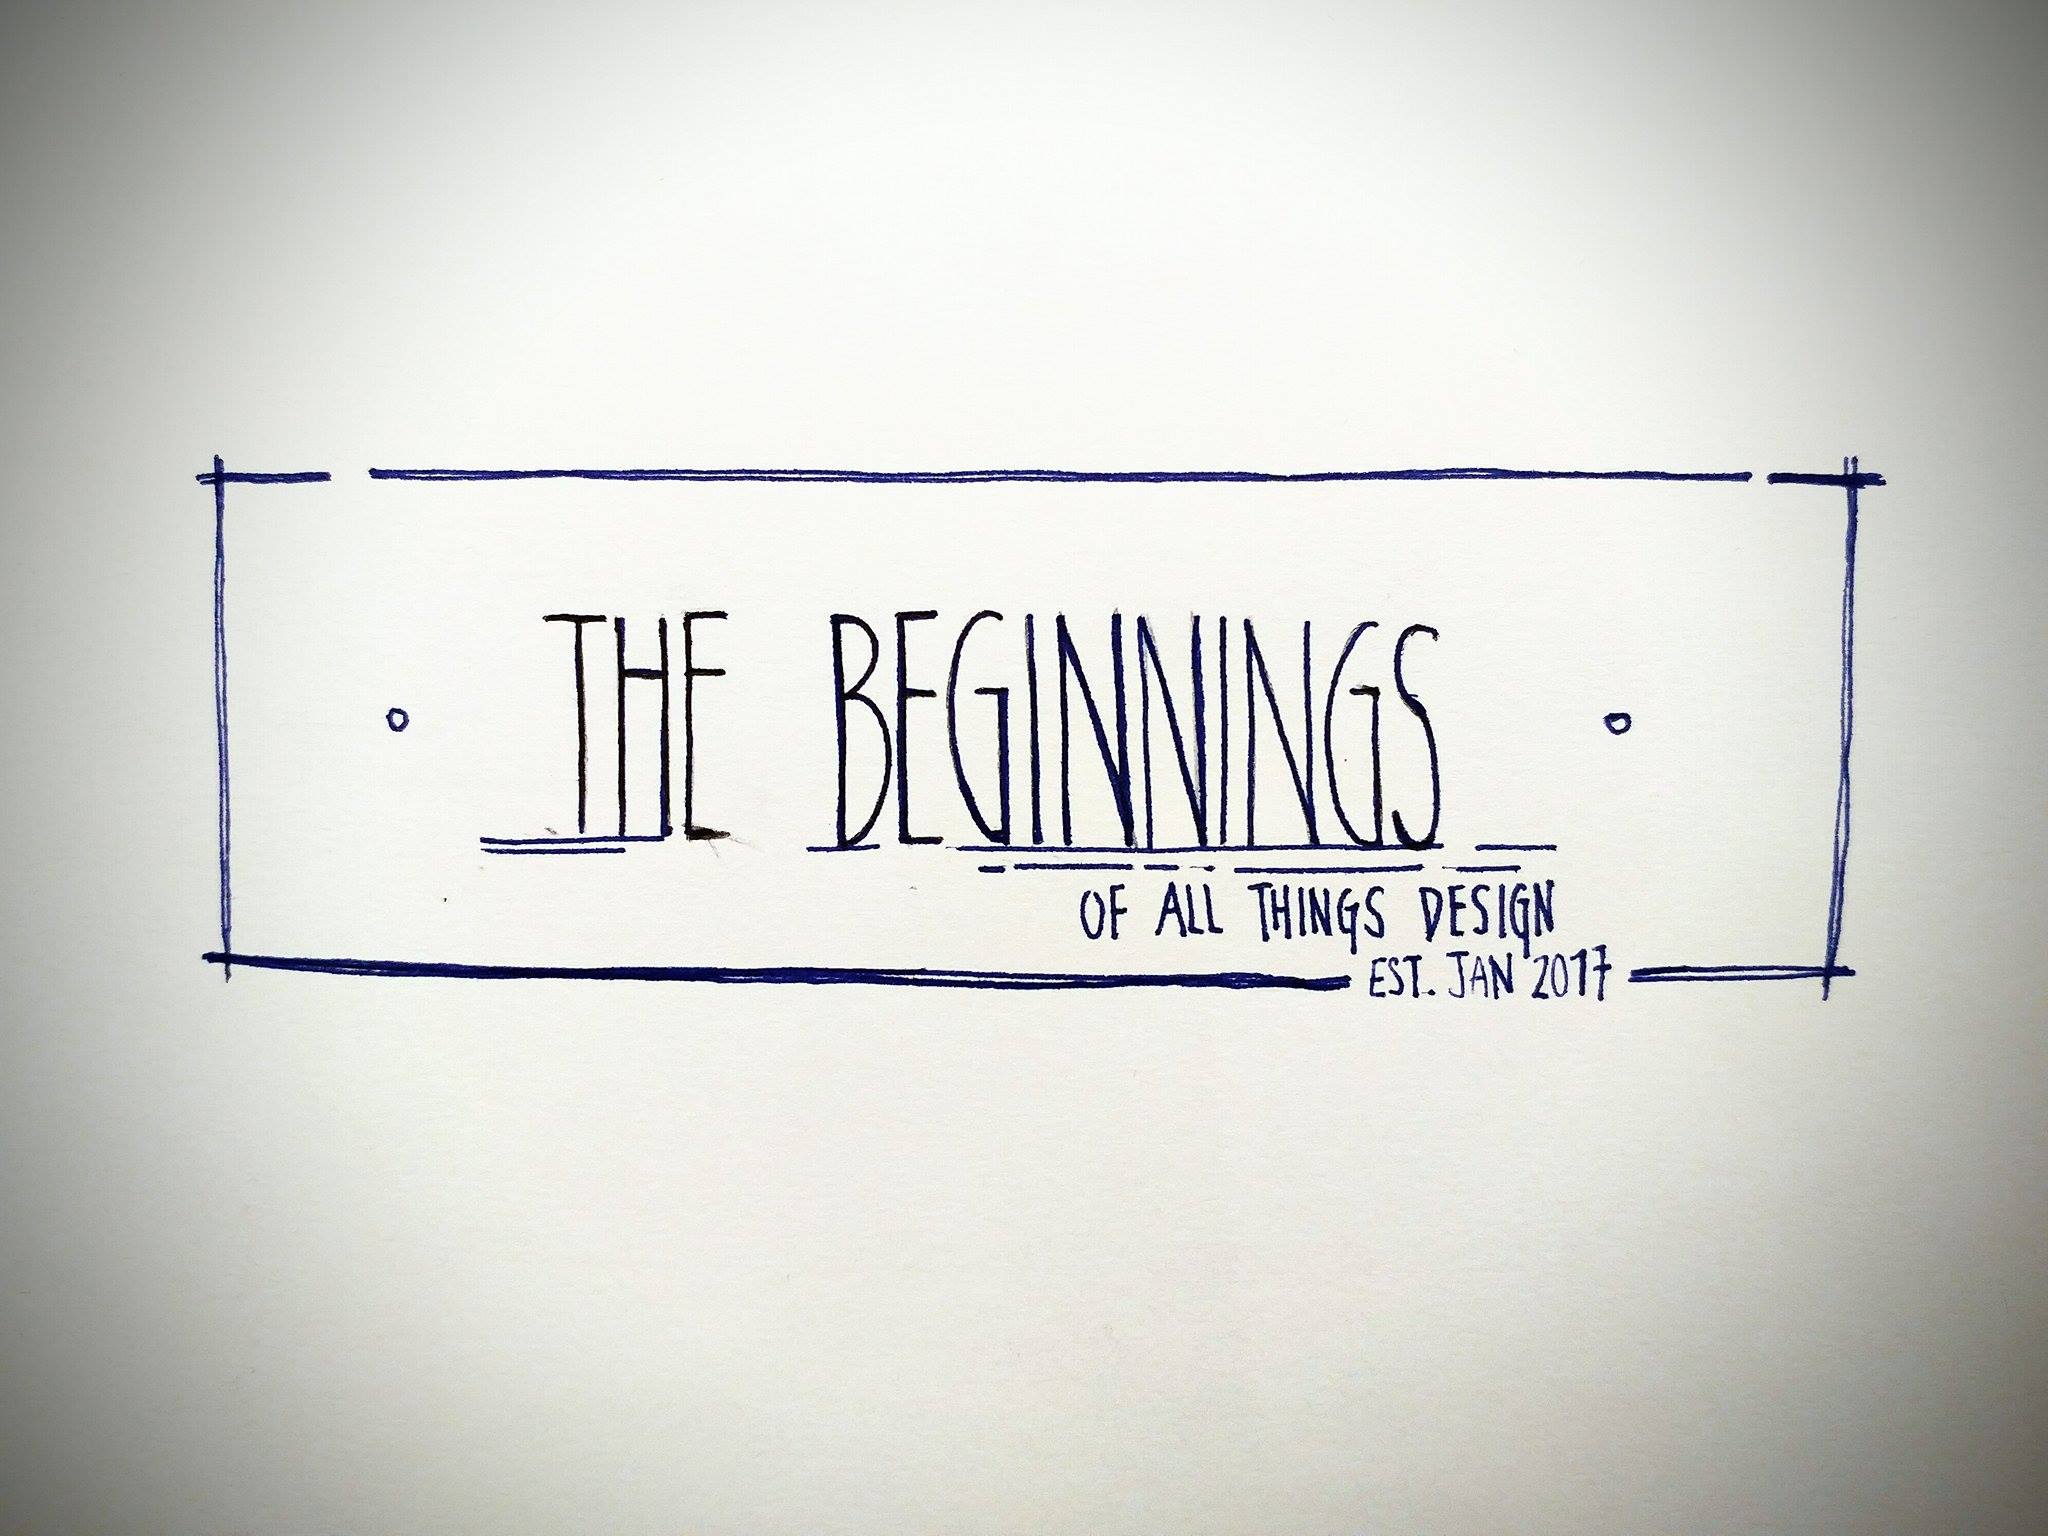 THE BEGINNINGS
OF ALL THINGS DESIGN
EST. JAN 2017